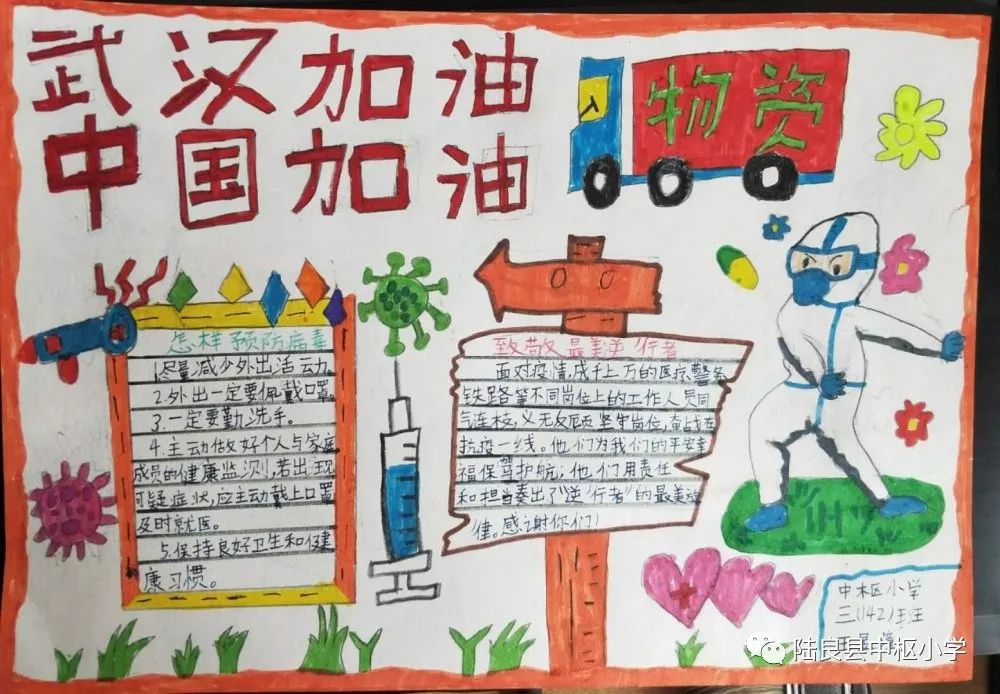 武汉加油
中国加油
物资
怎样预防病毒
1.尽量减少外出活动。
2.外出一定要佩戴口罩。
3.一定要勤洗手。
4.主动做好个人与家庭
成员的健康监测,若出现
可疑症状,应主动戴上口罩
及时就医。
5.保持良好卫生和健
康习惯。
致敬最美逆行者
面对疫情,成千上万的医疗警务
铁路等不同岗位上的工作人员同
气连枝,义无反顾坚牢岗位,奋战在
抗疫一线。他们为我们的平安幸
福保驾护航,他们用责任
和担当奏出了“逆行者”的最美旋
律。感谢你们!
中枢小学
三(142)班班
陆良县中枢小学